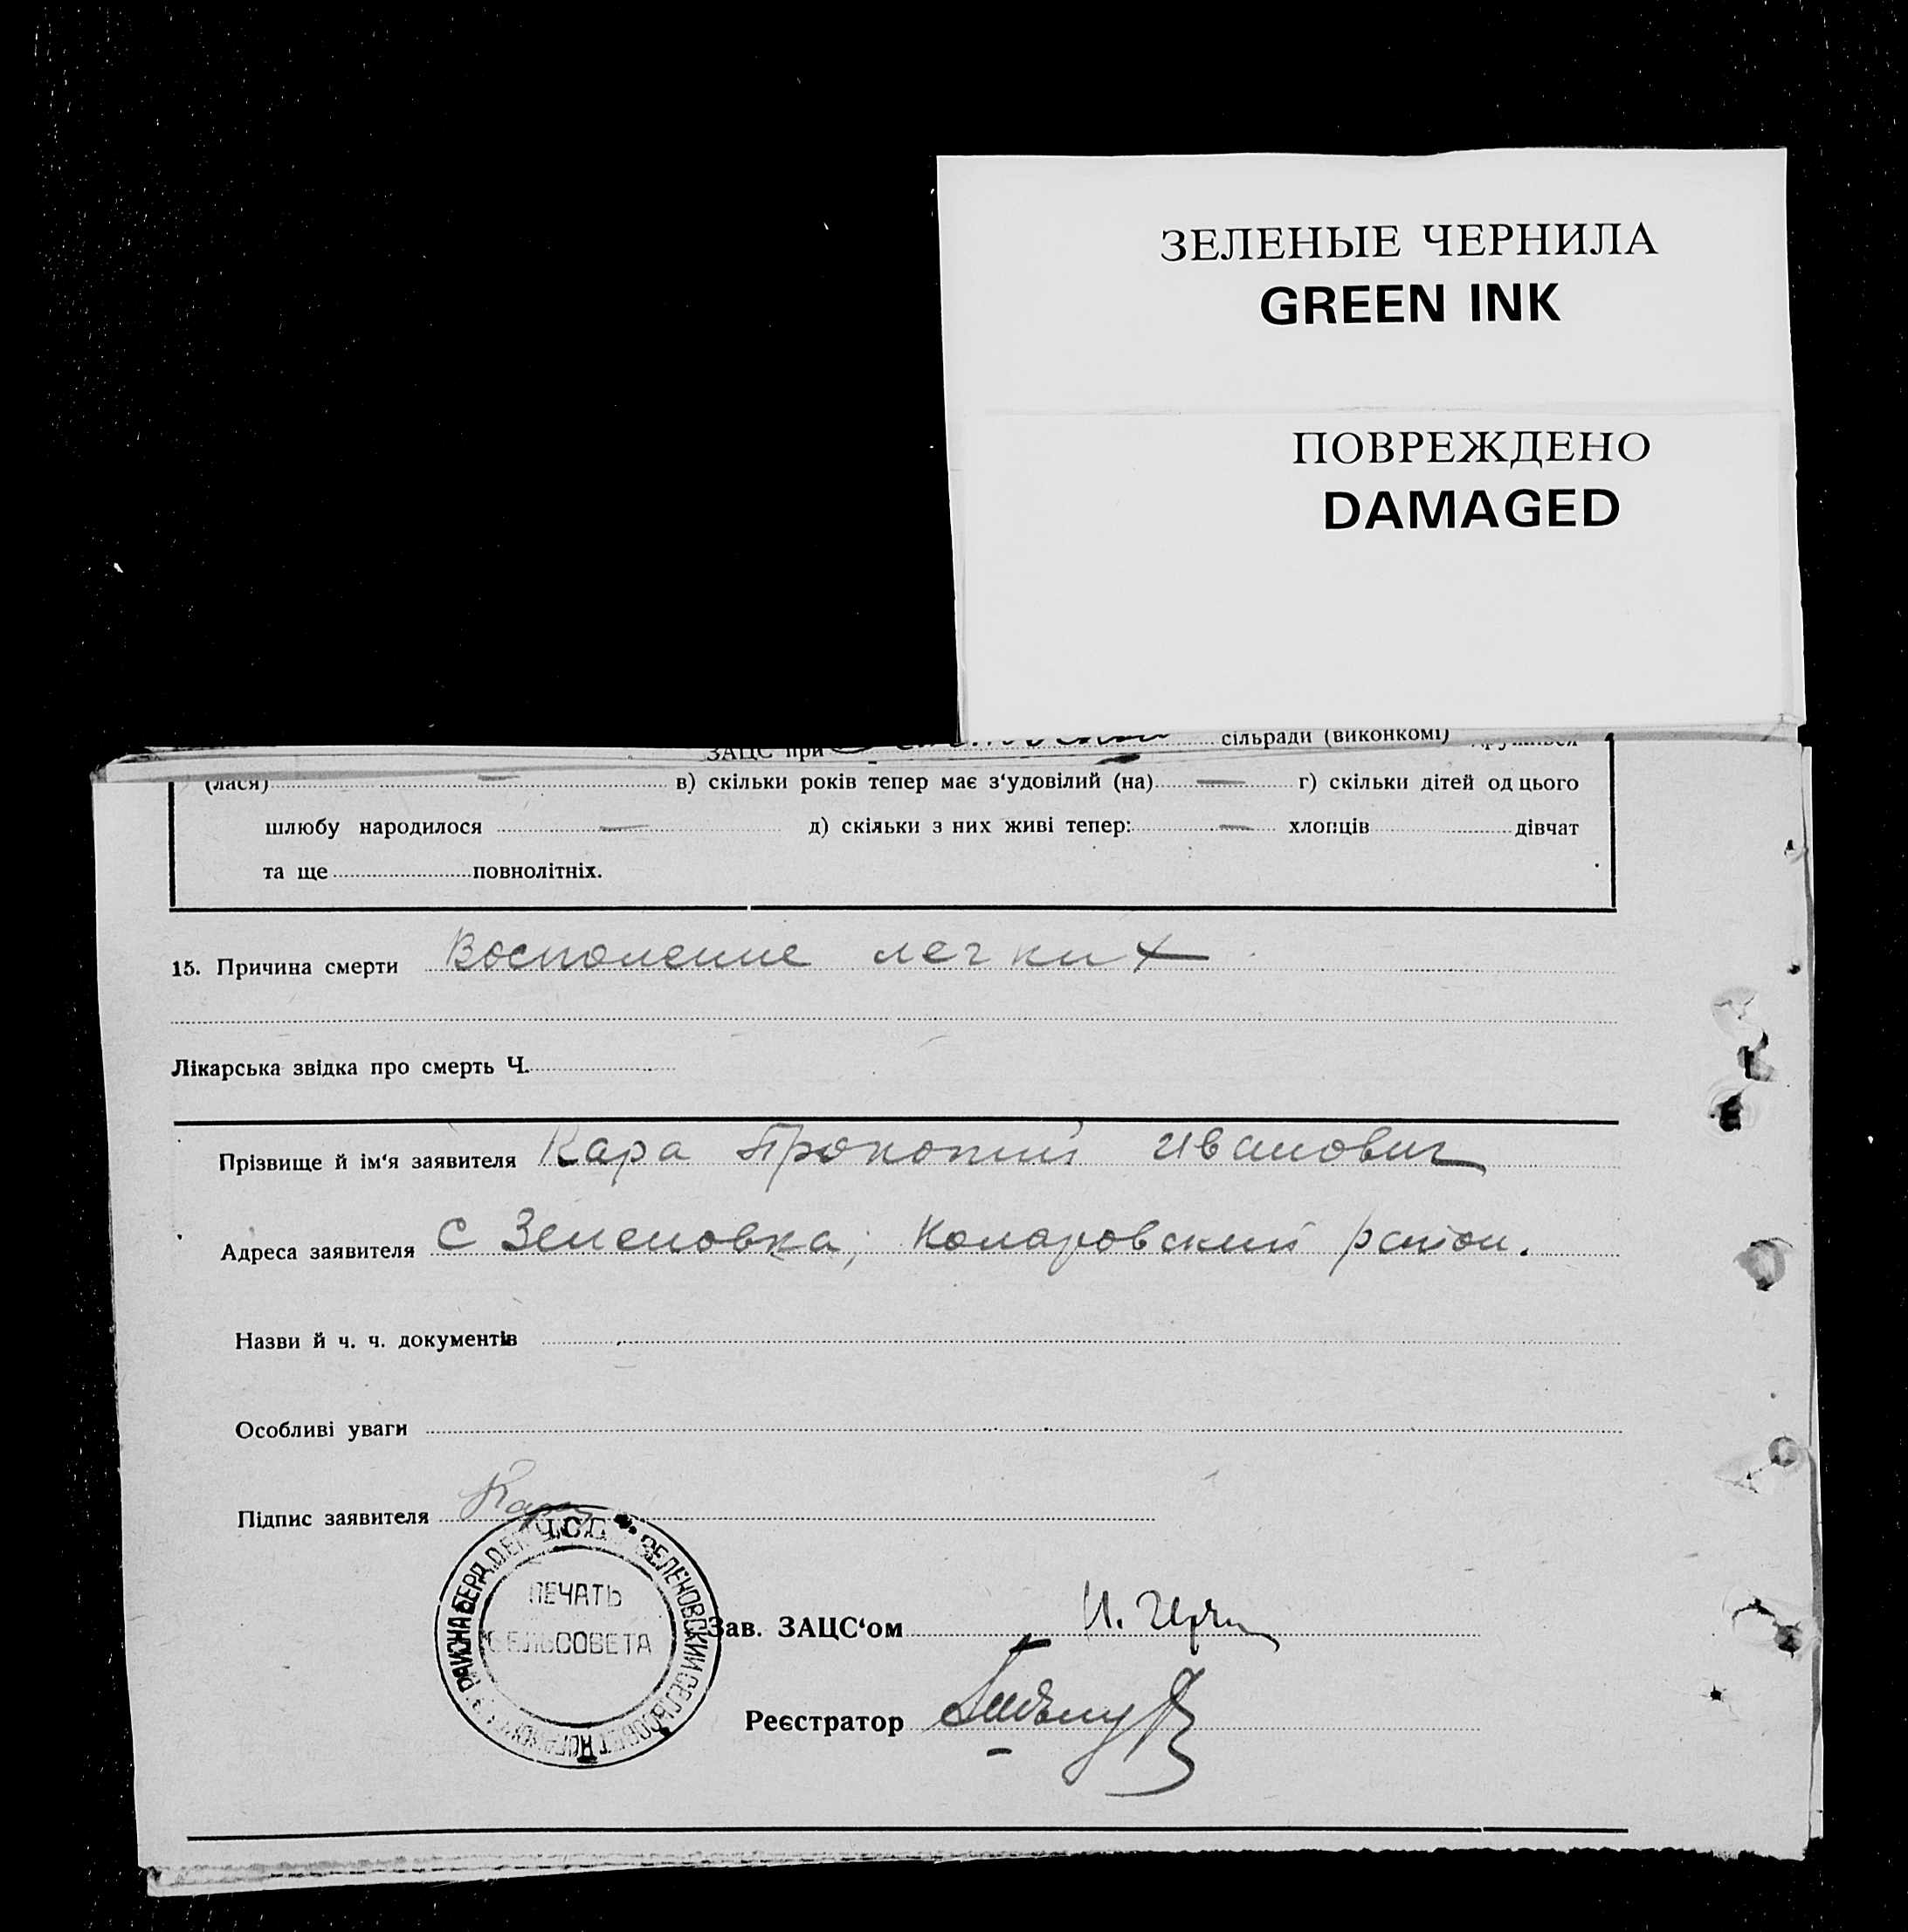 ЗЕЛЕНЫЕ ЧЕРНИЛА
GREEN INK
ПОВРЕЖДЕНО
DAMAGED
ЗАЦС при сільради (виконкомі)
(лася) в) скільки років тепер має з‘удовілий (на) — г) скільки дітей од цього
шлюбу народилося — д) скільки з них живі тепер: — хлопців дівчат
та ще повнолітніх.
15. Причина смерти Восполение легких
Лікарська звідка про смерть Ч.
Прізвище й ім‘я заявителя Кара Прокопий Иванович
Адреса заявителя с Зеленовка, Комаровский район.
Назви й ч. ч. документів
Особливі уваги
Підпис заявителя Кара
ЗЕЛЕНОВСКИЙ СЕЛЬСОВЕТ
ПЕЧАТЬ
СЕЛЬСОВЕТА
Зав. ЗАЦС‘ом И.
Реєстратор